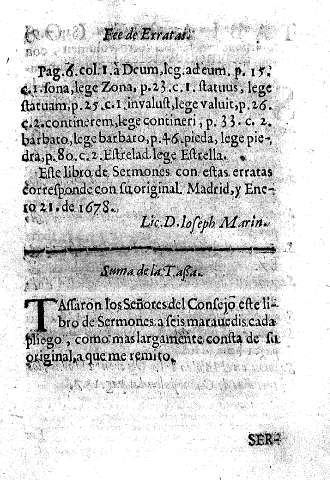 Fee de Erratas.
Pag. 6. col. 1. à Deum, leg. ad eum, p. 15.
c. 1. sona, lege Zona, p. 23. c. 1. statuus, lege
statuam, p. 25. c. 1. invalust, lege valuit, p. 26.
c. 2. continerem, lege contineri, p. 33. c. 2.
barbato, lege barbaro, p. 46. pieda, lege pie-
dra, p. 80. c. 2. Estrelad. lege Estrella.
Este libro de Sermones con estas erratas
corresponde con su original. Madrid, y Ene-
ro 21. de 1678.
Lic. D. Ioseph Marin.
Suma de la Tassa.
TAssaron los Señores del Consejo este li-
bro de Sermones a seis maravedis cada
pliego, como mas largamente consta de su
original, a que me remito.
SER-